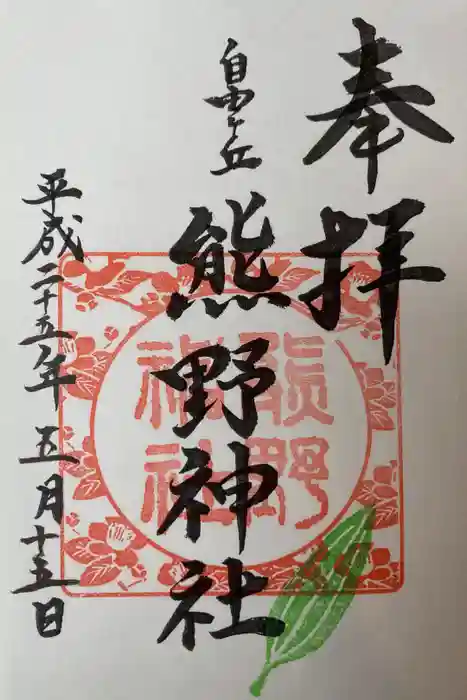 奉拝
自由ヶ丘
熊野神社
平成二十五年五月十五日
熊野
神社